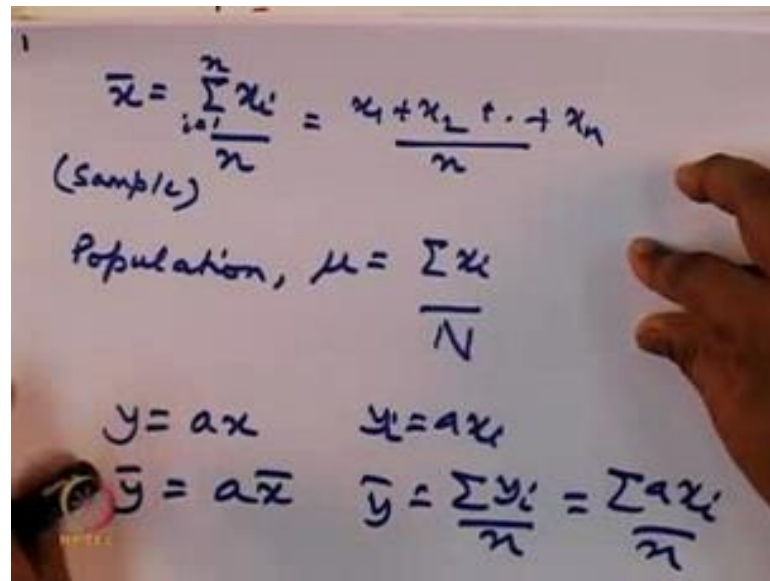 1
x̄ = Σ_{i=1}^{n} x_i / n = x_1 + x_2 + . . + x_n / n
(Sample)
Population, μ = Σ x_i / N
y = ax    y_i = ax_i
ȳ = ax̄    ȳ = Σ y_i / n = Σ a x_i / n
NPTEL